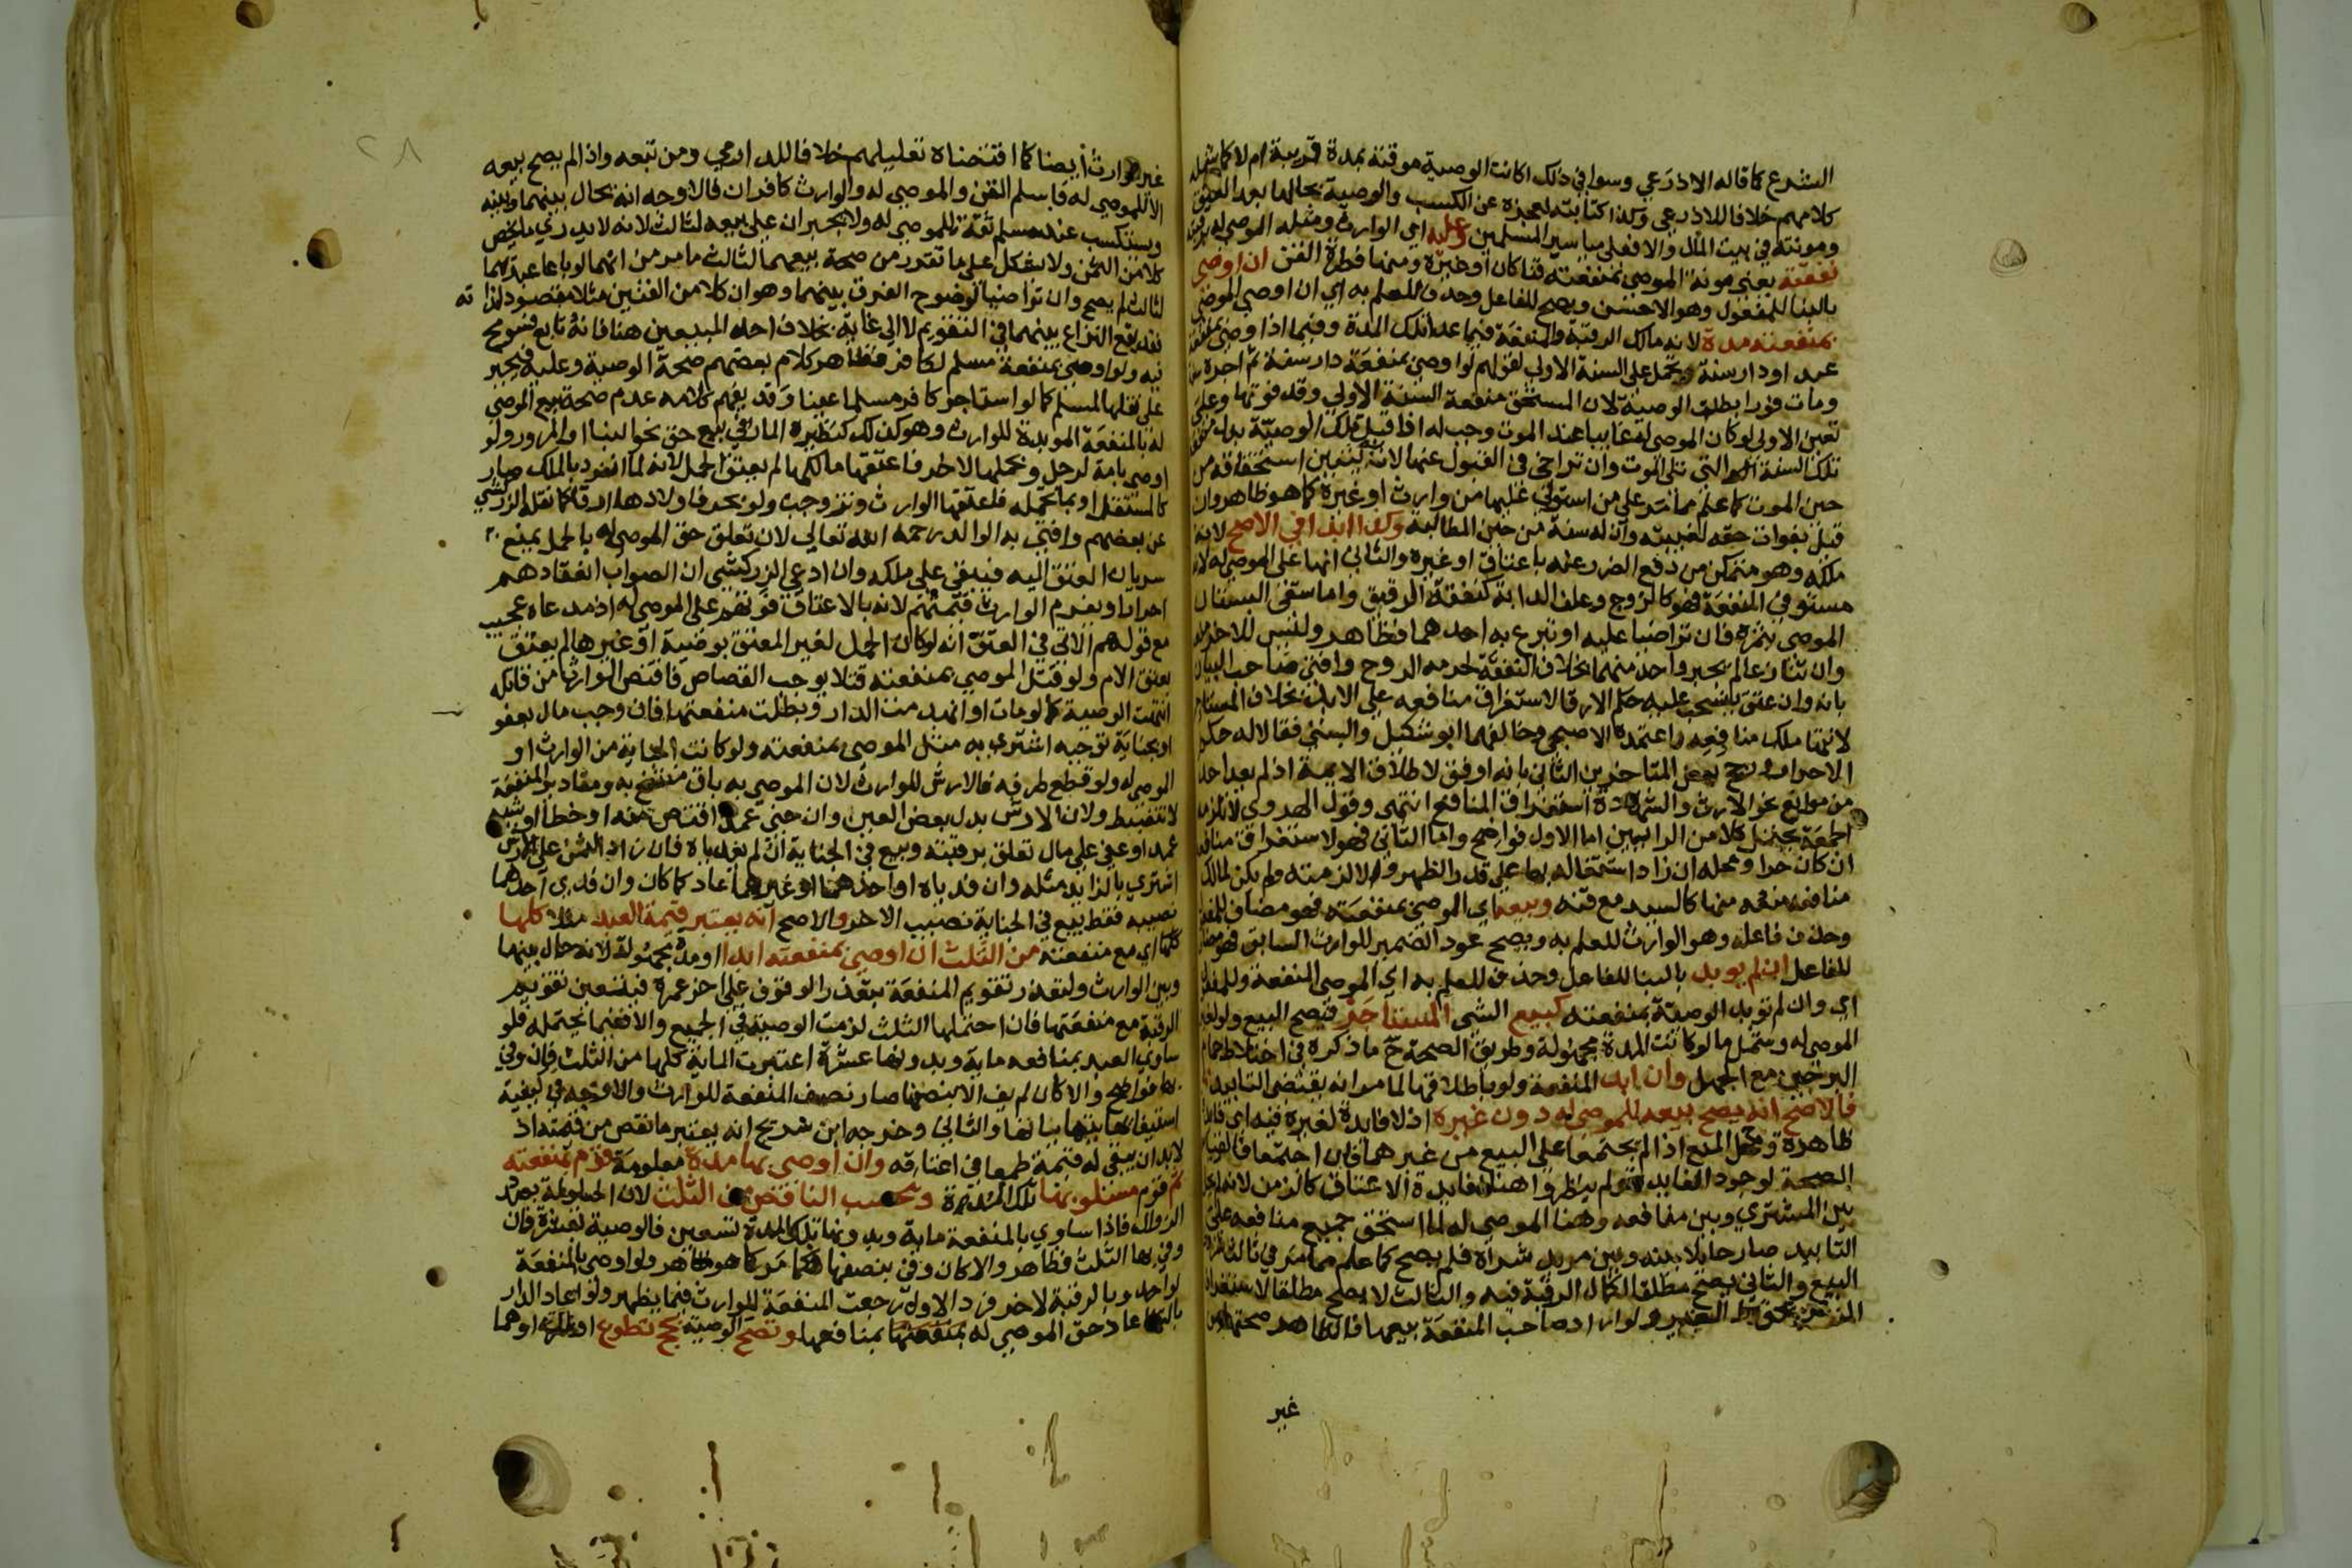 الشرع كما قاله الاذرعي وسوا في ذلك اكانت الوصية موقتة بمدة قريبة ام لا كما شمله
كلامهم خلافا للاذرعي وكذا كتابته لعجزه عن الكسب والوصية بحالها بعد العتق
ومونته في بيت المال والا فعلى مياسير المسلمين وعليه اي الوارث ومثله الموصى له
نفقته يعني مونة الموصى بمنفعته قنا كان او غيره ومنها فطرة القن ان اوصى
بالبنا للمفعول وهو الاحسن ويصح للفاعل وحذف للعلم به اي ان اوصى الموصي
بمنفعته مدة لانه مالك الرقبة والمنفعة فيما عدا تلك المدة وفيما اذا اوصى بمنفعة
عبد او دار سنة يحمل على السنة الاولى لقولهم لو اوصى بمنفعة دار سنة ثم اجره سنة
ومات فورا بطلت الوصية لان المستحق منفعة السنة الاولى وقد فوتها وعلى
تعين الاولى لو كان الموصى له غايبا عند الموت وجب له اذا قبل تلك الوصية بدل منفعة
تلك السنة التي تلي الموت وان تراخى في القبول عنها لانه به يتبين استحقاقه من
حين الموت كما علم مما مر على من استولى عليها من وارث او غيره كما هو ظاهر وان
قيل بفوات حقه لغيبته وان له سنة من حين المطالبة وكذا ابدا في الاصح لانه
ملكه وهو متمكن من دفع الضرر عنه باعتاق او غيره والثاني انها على الموصى له لانه
مستوفي المنفعة فهو كالزوج وعلف الدابة كنفقة الرقيق واما سقي البستان
الموصى بثمره فان تراضيا عليه او تبرع به احدهما فظاهر وليس للاخر منعه
وان تنازعا لم يجبر واحد منهما بخلاف النفقة لحرمة الروح وافتى صاحب البيان
بانه وان عتق ينسحب عليه حكم الارقا لاستغراق منافعه على الابد بخلاف المستاجر
لانتها ملك منافعه واعتمده الاصبحي وخالفهما ابو شكيل والبستي فقالا له حكم
الاحرار ورجح بعض المتاخرين الثاني بانه اوفق لاطلاق الايمة اذ لم يعد احد
من موانع نحو الارث والشهادة استغراق المنافع انتهى وقول الهروي لا تلزمه
الجمعة يحتمل كلا من الرايين اما الاول فواضح واما الثاني فهو لاستغراق منافعه
ان كان حرا ومحله ان زاد اشتغاله بها على قدر الظهر والا لزمته ولم يكن لمالك
منافعه منعه منها كالسيد مع قنه وبيعه اي الموصى بمنفعته فهو مضاف للمفعول
وحذف فاعله وهو الوارث للعلم به ويصح عود الضمير للوارث السابق فهو مضاف
للفاعل ان لم يوبد بالبنا للفاعل وحذف للعلم به اي الموصي المنفعة وللمفعول
اي وان لم توبد الوصية بمنفعته كبيع الشي المستاجر فيصح البيع ولو لغير
الموصى له ويشمل ما لو كانت المدة مجهولة وطريق الصحة ح ما ذكره في اختلاط حمام
البرجين مع الجهل وان ابد المنفعة ولو باطلاقها لما مر انه يقتضي التابيد
فالاصح انه يصح بيعه للموصى له دون غيره اذ لا فايدة لغيره فيه اي فايدة
ظاهرة ومحل المنع اذا لم يجتمعا على البيع من غيرهما فان اجتمعا فالقياس
الصحة لوجود الفايدة ولم ينظروا هنا لفايدة الاعتاق كالزمن لانه لم يحل
بين المشتري وبين منافعه وهنا الموصى له لما استحق جميع منافعه على
التابيد صار حايلا بينه وبين مريد شراه فلم يصح كما علم مما مر في ثالث شروط
البيع والثاني يصح مطلقا لكمال الرقبة فيه والثالث لا يصح مطلقا لاستغراق
المنفعة بحق الغير ولو اراد صاحب المنفعة بيعها فالظاهر صحته من
غير
غير الوارث ايضا كما اقتضاه تعليلهم خلافا للدارمي ومن تبعه واذا لم يصح بيعه
الا للموصى له فاسلم القن والموصى له والوارث كافران فالاوجه انه يحال بينهما وبينه
ويستكسب عند مسلم ثقة للموصى له ولا يجبران على بيعه لثالث لانه لا يدري ما يخص
كلا من الثمن ولا يشكل على ما تقرر من صحة بيعهما لثالث ما مر من انهما لو باعا عبديهما
لثالث لم يصح وان تراضيا لوضوح الفرق بينهما وهو ان كلا من القنين مثلا مقصود لذاته
فقد يقع النزاع بينهما في التقويم لا الى غاية بخلاف احد المبيعين هنا فانه تابع فسومح
فيه ولو اوصى بمنفعة مسلم لكافر فظاهر كلام بعضهم صحة الوصية وعليه فيجبر
على نقلها لمسلم كما لو استاجر كافر مسلما عينا وقد يفهم كلامه عدم صحة بيع الموصى
له بالمنفعة الموبدة للوارث وهو كذلك كنظيره المار في بيع حق نحو البنا او المرور ولو
اوصى بامة لرجل وبحملها لاخر فاعتقها مالكها لم يعتق الحمل لانه لما انفرد بالملك صار
كالمستقل او بما تحمله فاعتقها الوارث وتزوجت ولو بحر فاولادها ارقا كما نقله الزركشي
عن بعضهم وافتى به الوالد رحمه الله تعالى لان تعلق حق الموصى له بالحمل يمنع
سريان العتق اليه فيبقى على ملكه وان ادعى الزركشي ان الصواب انعقادهم
احرارا ويغرم الوارث قيمتهم لانه بالاعتاق فوتهم على الموصى له اذ مدعاه عجيب
مع قولهم الاتي في العتق انه لو كان الحمل لغير المعتق بوصية او غيرها لم يعتق
بعتق الام ولو قتل الموصى بمنفعته قتلا يوجب القصاص فاقتص الوارث من قاتله
انتهت الوصية كما لو مات او انهدمت الدار وبطلت منفعتها فان وجب مال بعفو
او بجناية توجبه اشترى به مثل الموصى بمنفعته ولو كانت الجناية من الوارث او
الموصى له ولو قطع طرفه فالارش للوارث لان الموصى به باق منتفع به ومقادير المنفعة
لا تنضبط ولان الارش بدل بعض العين وان جنى عمدا اقتص منه او خطا او شبه
عمد او عفي على مال تعلق برقبته وبيع في الجناية ان لم يفدياه فان زاد الثمن على الارش
اشترى بالزايد مثله وان فدياه او احدهما او غيرهما عاد كما كان وان فدى احدهما
نصيبه فقط بيع في الجناية نصيب الاخر والاصح انه يعتبر قيمة العبد مثلا كلها
كلها اي مع منفعته من الثلث ان اوصى بمنفعته ابدا او مدة مجهولة لانه حال بينها
وبين الوارث ولتعذر تقويم المنفعة بتعذر الوقوف على اخر عمره فيتعين تقويم
الرقبة مع منفعتها فان احتملها الثلث لزمت الوصية في الجميع والا ففيما يحتمله فلو
ساوى العبد بمنافعه ماية وبدونها عشرة اعتبرت الماية كلها من الثلث فان وفى
بها فواضح والا كان لم يف الا بنصفها صار نصف المنفعة للوارث والاوجه في كيفية
استيفايها انهما يتهاياتها والثاني وخرجه ابن سريج انه يعتبر ما نقص من قيمته اذ
لا بد ان يبقى له قيمة طمعا في اعتاقه وان اوصى بها مدة معلومة قوم بمنفعته
ثم قوم مسلوبها تلك المدة ويحسب الناقص من الثلث لان الحيلولة بصدد
الزوال فاذا ساوى بالمنفعة ماية وبدونها تلك المدة تسعين فالوصية بعشرة فان
وفى بها الثلث فظاهر والا كان وفى بنصفها فكما مر كما هو ظاهر ولو اوصى بالمنفعة
لواحد وبالرقبة لاخر فرد الاول رجعت المنفعة للوارث فيما يظهر ولو اعاد الدار
بالتها عاد حق الموصى له بمنفعتها بمنافعها وتصح الوصية بحج تطوع او عمرته او هما